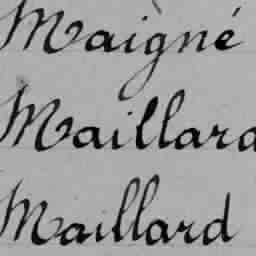 Maigné
Maillard
Maillard